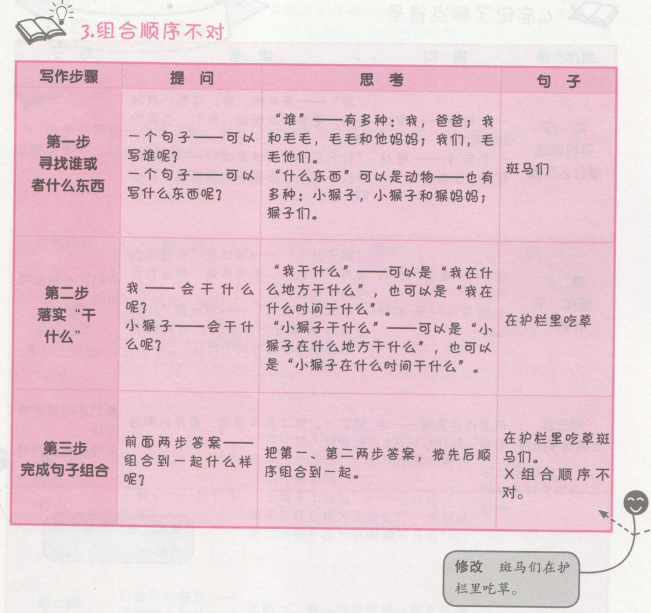 3.组合顺序不对
写作步骤
提 问
思 考
句 子
第一步
寻找谁或
者什么东西
一个句子——可以
写谁呢？
一个句子——可以
写什么东西呢？
“谁”——有多种：我，爸爸；我
和毛毛，毛毛和他妈妈；我们，毛
毛他们。
“什么东西”可以是动物——也有
多种：小猴子，小猴子和猴妈妈；
猴子们。
斑马们
第二步
落实“干
什么”
我——会干什么
呢？
小猴子——会干什
么呢？
“我干什么”——可以是“我在什
么地方干什么”，也可以是“我在
什么时间干什么”。
“小猴子干什么”——可以是“小
猴子在什么地方干什么”，也可以
是“小猴子在什么时间干什么”。
在护栏里吃草
第三步
完成句子组合
前面两步答案——
组合到一起什么样
呢？
把第一、第二两步答案，按先后顺
序组合到一起。
在护栏里吃草斑
马们。
X组合顺序不
对。
修改 斑马们在护
栏里吃草。